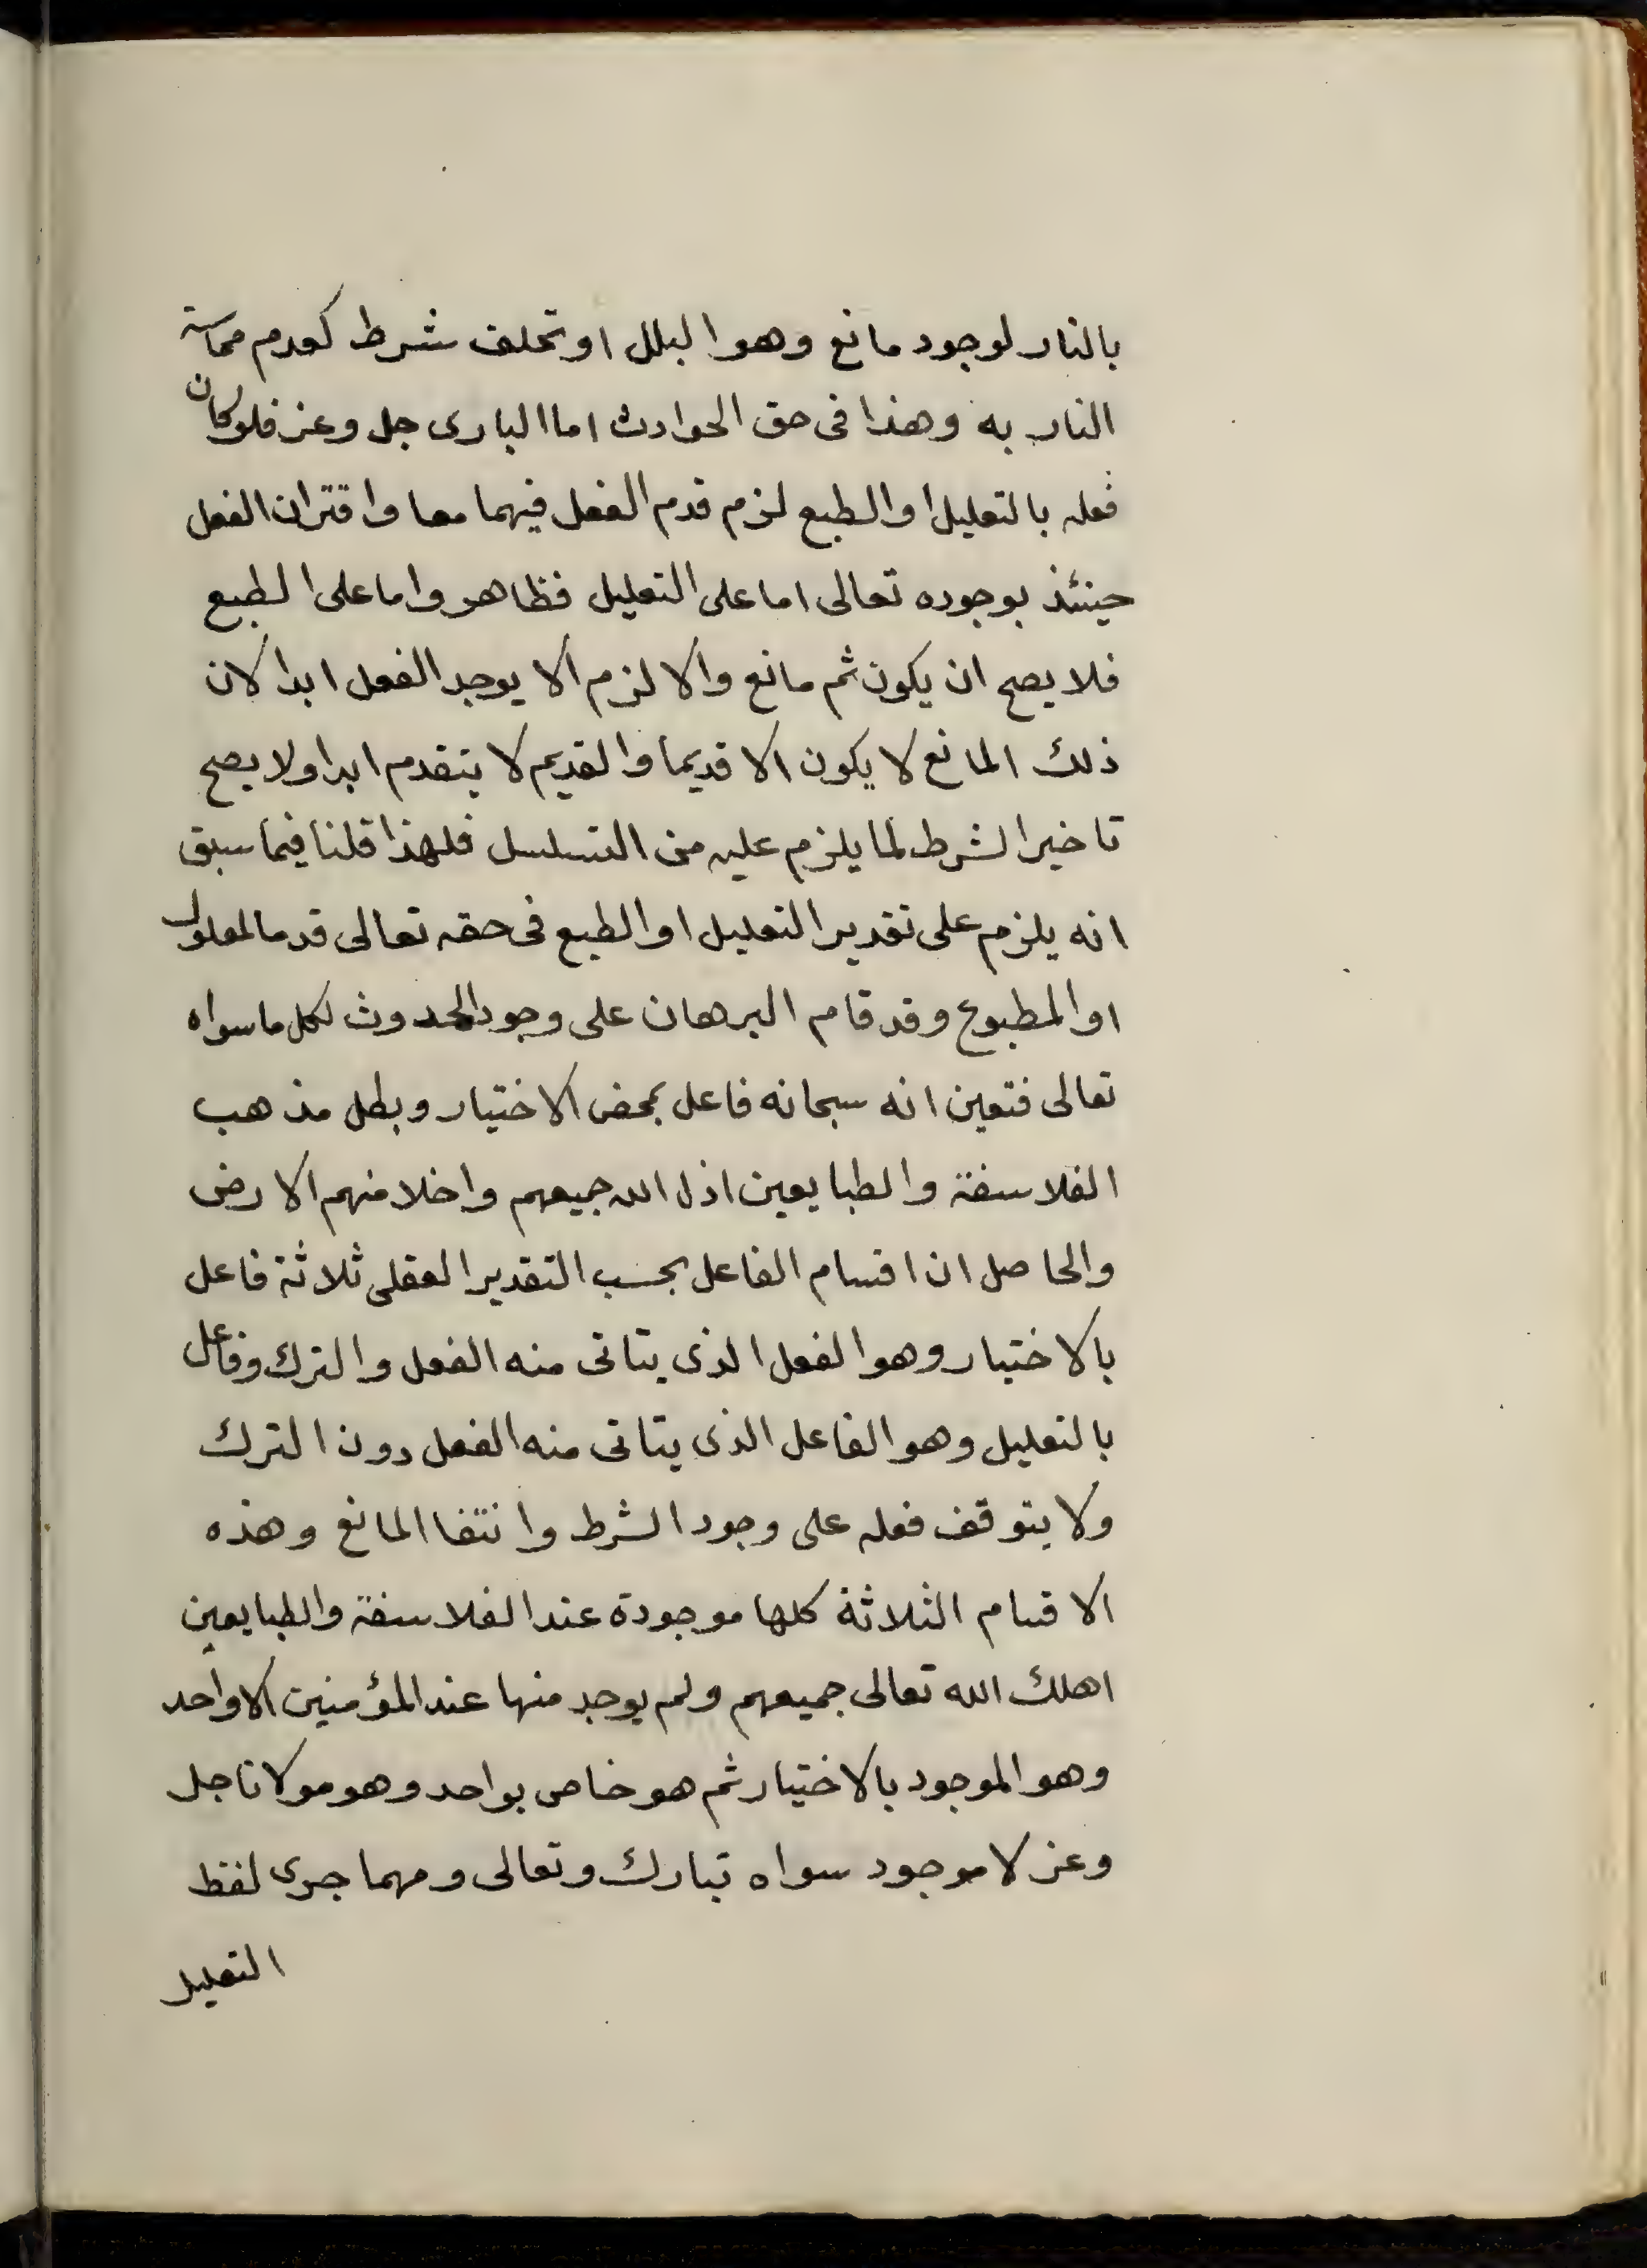 بالنار لوجود مانع وهو البلل او تخلف شرط كعدم مماسة
النار به وهذا فى حق الحوادث اما البارى جل وعز فلو كان
فعله بالتعليل او الطبع لزم قدم الفعل فيهما معا واقتران الفعل
حينئذ بوجوده تعالى اما على التعليل فظاهر واما على الطبع
فلا يصح ان يكون ثم مانع والا لزم الا يوجد الفعل ابدا لان
ذلك المانع لا يكون الا قديما والقديم لا ينقدم ابدا ولا يصح
تاخير الشرط لما يلزم عليه من التسلسل فلهذا قلنا فيما سبق
انه يلزم على تقدير التعليل او الطبع فى حقه تعالى قدم المعلول
او المطبوع وقد قام البرهان على وجود الحدوث لكل ما سواه
تعالى فتعين انه سبحانه فاعل بمحض الاختيار وبطل مذهب
الفلاسفة والطبايعين اذل الله جميعهم واخلا منهم الارض
والحاصل ان اقسام الفاعل بحسب التقدير العقلى ثلاثة فاعل
بالاختيار وهو الفعل الذى يتاتى منه الفعل والترك وفاعل
بالتعليل وهو الفاعل الذى يتاتى منه الفعل دون الترك
ولا يتوقف فعله على وجود الشرط وانتفا المانع وهذه
الاقسام الثلاثة كلها موجودة عند الفلاسفة والطبايعين
اهلك الله تعالى جميعهم ولم يوجد منها عند المؤمنين الا واحد
وهو الموجود بالاختيار ثم هو خاص بواحد وهو مولانا جل
وعز لا موجود سواه تبارك وتعالى ومهما جرى لفظ
التعليل